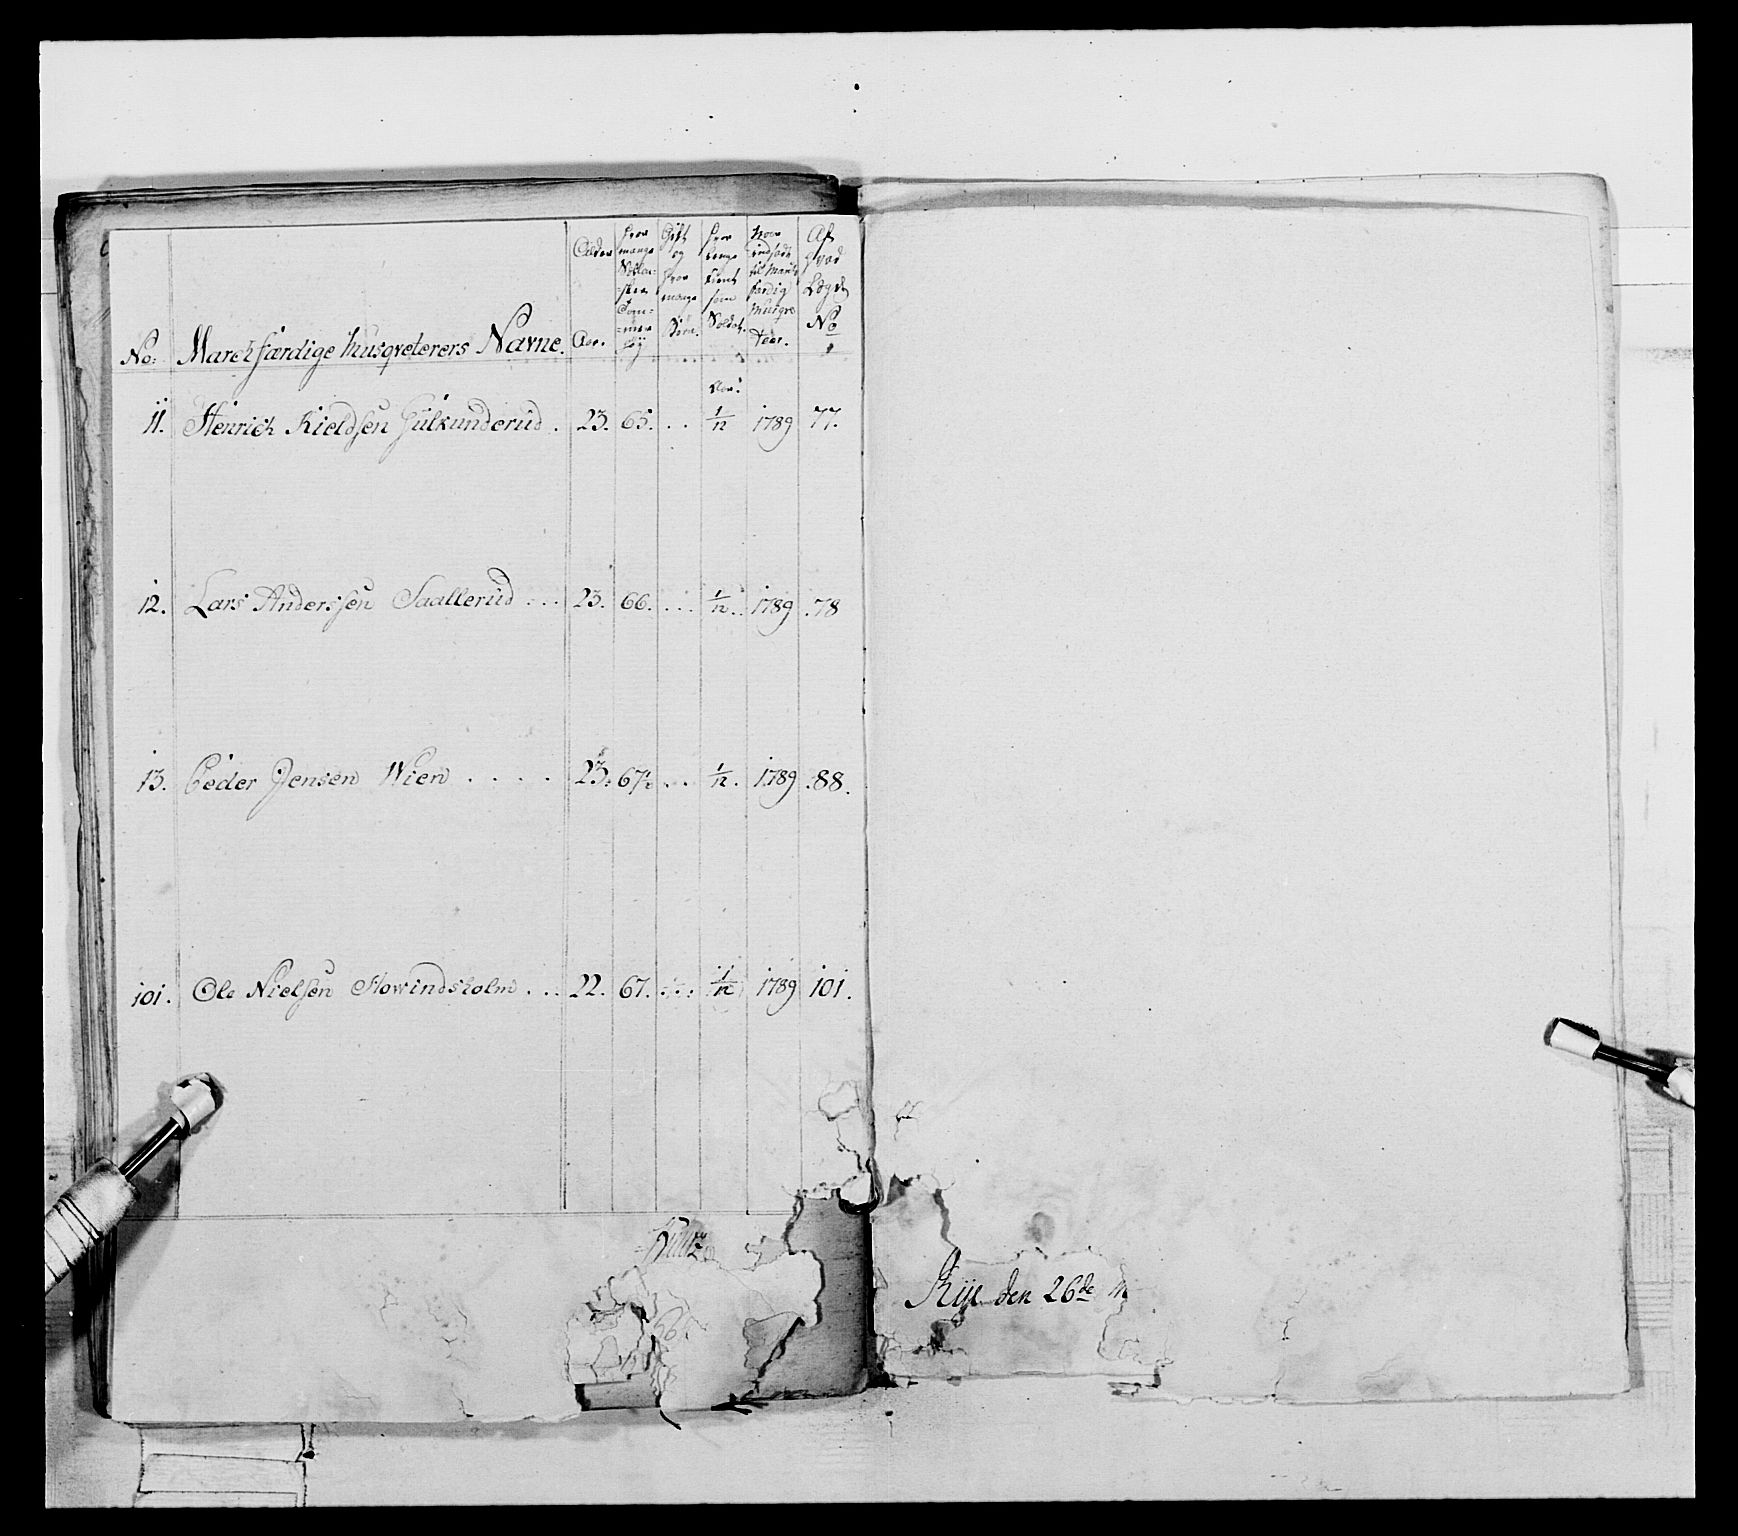 No: Marchfærdige Musqveterers Navne. Alder Aar. Hvor mange Sollen- -ske Tom- -mer høy Gift og hvor mange Børn. Hvor lenge tient som Soldat. Naar indsadt til March færdig Musqve teer. Af hvad Lægd No
Aar:
11. Henrich Kieldsen Gulkunderud . 23. 65. . . 1/12 1789 77.
12. Lars Anderssen Saallerud . . . 23. 66. . . . 1/12 . . 1789 . 78
13. Peder Jensen Wien . . . . 23. 67. . . 1/12 . 1789 . 88.
101. Ole Nielsen Slowindsholm . . . 22. 67. . . . 1/12 1789 101.
Rye den 26de M